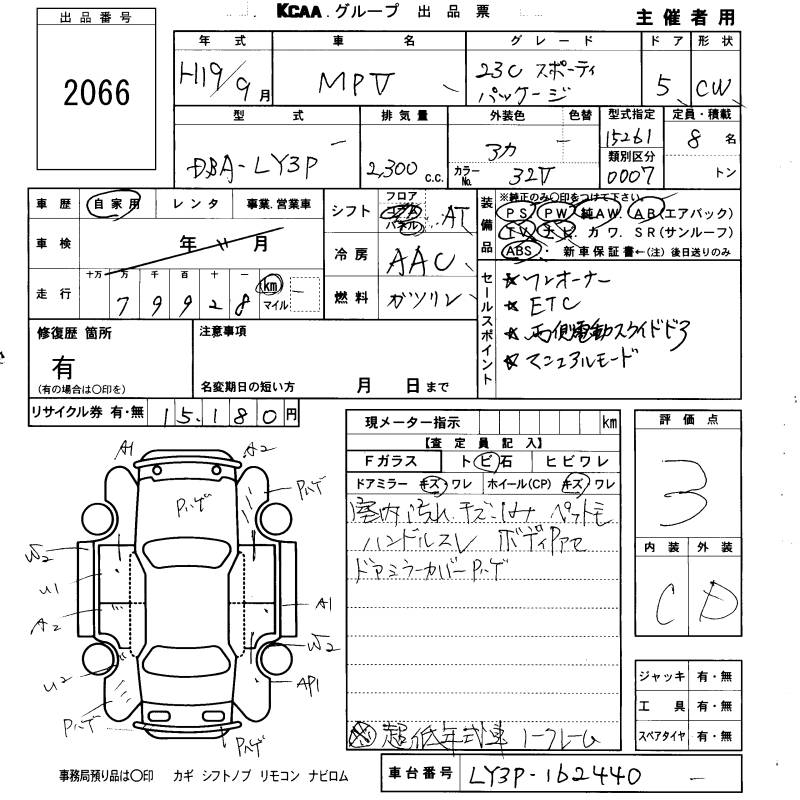 KCAA.グループ 出品票
主催者用
出品番号
2066
年式 車名 グレード ドア 形状
H19/9月 MPV 23C スポーティ パッケージ 5 CW
型式 排気量 外装色 色替 型式指定 定員・積載
DBA-LY3P 2,300 c.c. アカ 15261 8 名
カラーNo. 32V 類別区分 0007 トン
車歴 自家用 レンタ 事業.営業車
車検 年 〃 月
走行 十万 万 千 百 十 一 km マイル
79928
シフト フロア コラム パネル AT
冷房 AAC
燃料 ガソリン
装備品
※純正のみ○印をつけて下さい。
PS PW 純AW. AB(エアバック)
TV ナビ. カワ. SR(サンルーフ)
ABS 新車保証書←(注)後日送りのみ
セールスポイント
★ワンオーナー
★ETC
★両側電動スライドドア
★マニュアルモード
修復歴 箇所
有
(有の場合は○印を)
注意事項
名変期日の短い方 月 日まで
リサイクル券 有・無 15,180円
現メーター指示 km
【査定員記入】
Fガラス トビ石 ヒビワレ
ドアミラー キズ・ワレ ホイール(CP) キズ・ワレ
室内汚れ キズ シミ ペット毛
ハンドルスレ ボディPアセ
ドアミラーカバーPハゲ
超低年式車 ノークレーム
評価点
3
内装 外装
C D
A1 A2
Pハゲ Pハゲ
W2
U1
A2 A1
W2
U2 AP1
Pハゲ
Pハゲ
ジャッキ 有・無
工具 有・無
スペアタイヤ 有・無
事務局預り品は○印 カギ シフトノブ リモコン ナビロム
車台番号 LY3P-162440